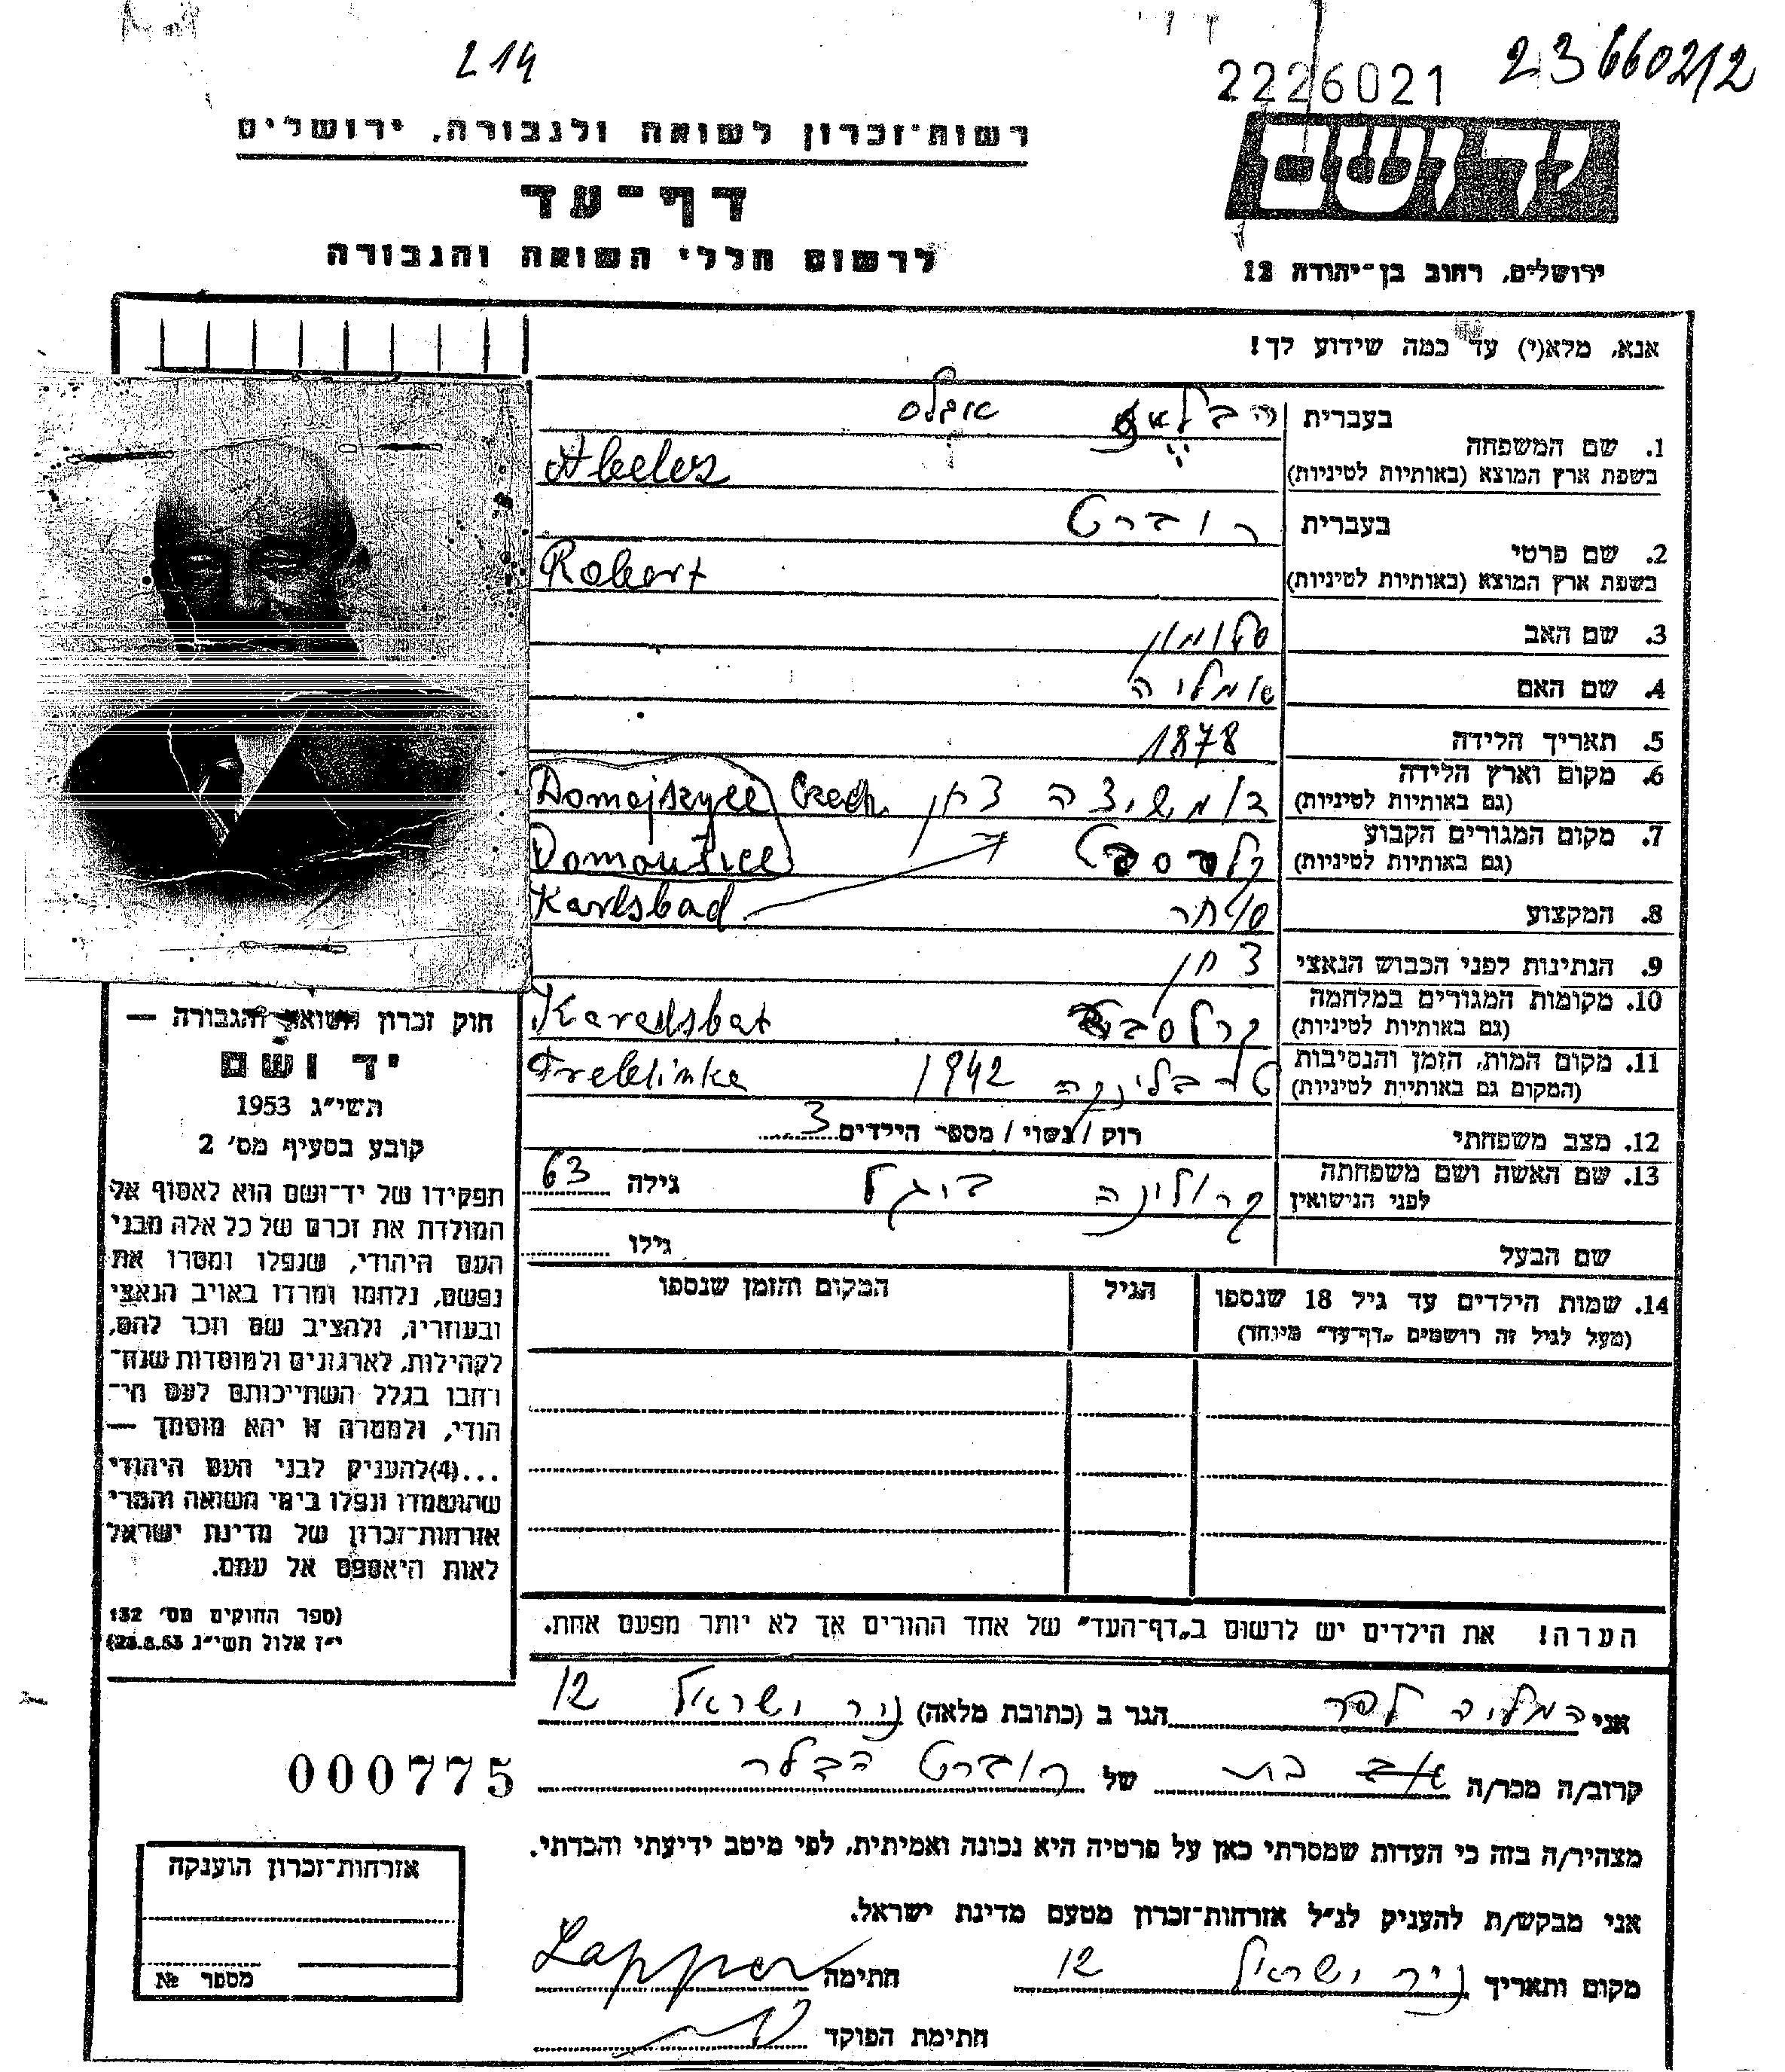 214
2226021
23660212
רשות־זכרון לשואה ולגבורה, ירושלים
דף־עד
לרשום חללי השואה והגבורה
ירושלים, רחוב בן־יהודה 12
אנא, מלא(י) עד כמה שידוע לך!
1. שם המשפחה
בעברית
אבלס
בשפת ארץ המוצא (באותיות לטיניות)
Abeles
2. שם פרטי
בעברית רוברט
בשפת ארץ המוצא (באותיות לטיניות)
Robert
3. שם האב סלומון
4. שם האם אמליה
5. תאריך הלידה 1878
6. מקום וארץ הלידה
(גם באותיות לטיניות)
דומשיצה צ'כ Czech Domejszyce
7. מקום המגורים הקבוע
(גם באותיות לטיניות)
Domoušice
Karlsbad
8. המקצוע סוחר
9. הנתינות לפני הכבוש הנאצי צ'כ
10. מקומות המגורים במלחמה
(גם באותיות לטיניות)
קרלסבט Karelsbat
11. מקום המות, הזמן והנסיבות
(המקום גם באותיות לטיניות)
טרבלינקה 1942 Treblinke
12. מצב משפחתי רוק / נשוי / מספר הילדים 3
13. שם האשה ושם משפחתה
לפני הנישואין
קרולינה גילה 63
שם הבעל גילו
14. שמות הילדים עד גיל 18 שנספו הגיל המקום והזמן שנספו
(מעל לגיל זה רושמים „דף־עד” מיוחד)
הערה! את הילדים יש לרשום ב„דף־העד” של אחד ההורים אך לא יותר מפעם אחת.
חוק זכרון השואה והגבורה —
יד ושם
תשי״ג 1953
קובע בסעיף מס׳ 2
תפקידו של יד־ושם הוא לאסוף אל
המולדת את זכרם של כל אלה מבני
העם היהודי, שנפלו ומסרו את
נפשם, נלחמו ומרדו באויב הנאצי
ובעוזריו, ולהציב שם וזכר להם,
לקהילות, לארגונים ולמוסדות שנח־
רבו בגלל השתייכותם לעם הי־
הודי, ולמטרה זו יהא מוסמך —
...(4)להעניק לבני העם היהודי
שהושמדו ונפלו בימי השואה והמרי
אזרחות־זכרון של מדינת ישראל
לאות היאספם אל עמם.
(ספר החוקים מס׳ 132
י״ז אלול תשי״ג 28.8.53)
אני המליה לפר הגר ב (כתובת מלאה) ניר ישראל 12
קרוב/ה מכר/ה בת של רוברט הבלר
מצהיר/ה בזה כי העדות שמסרתי כאן על פרטיה היא נכונה ואמיתית, לפי מיטב ידיעתי והכרתי.
אני מבקש/ת להעניק לנ״ל אזרחות־זכרון מטעם מדינת ישראל.
מקום ותאריך ניר ישראל 12 חתימה Lapper
חתימת הפוקד
000775
אזרחות־זכרון הוענקה
מספר №